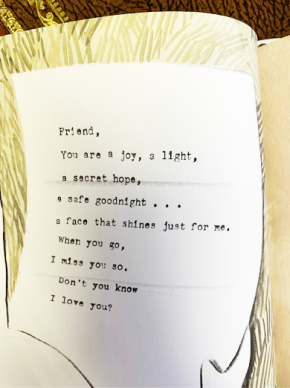 Friend,
You are a joy, a light,
a secret hope,
a safe goodnight . . .
a face that shines just for me.
When you go,
I miss you so.
Don't you know
I love you?